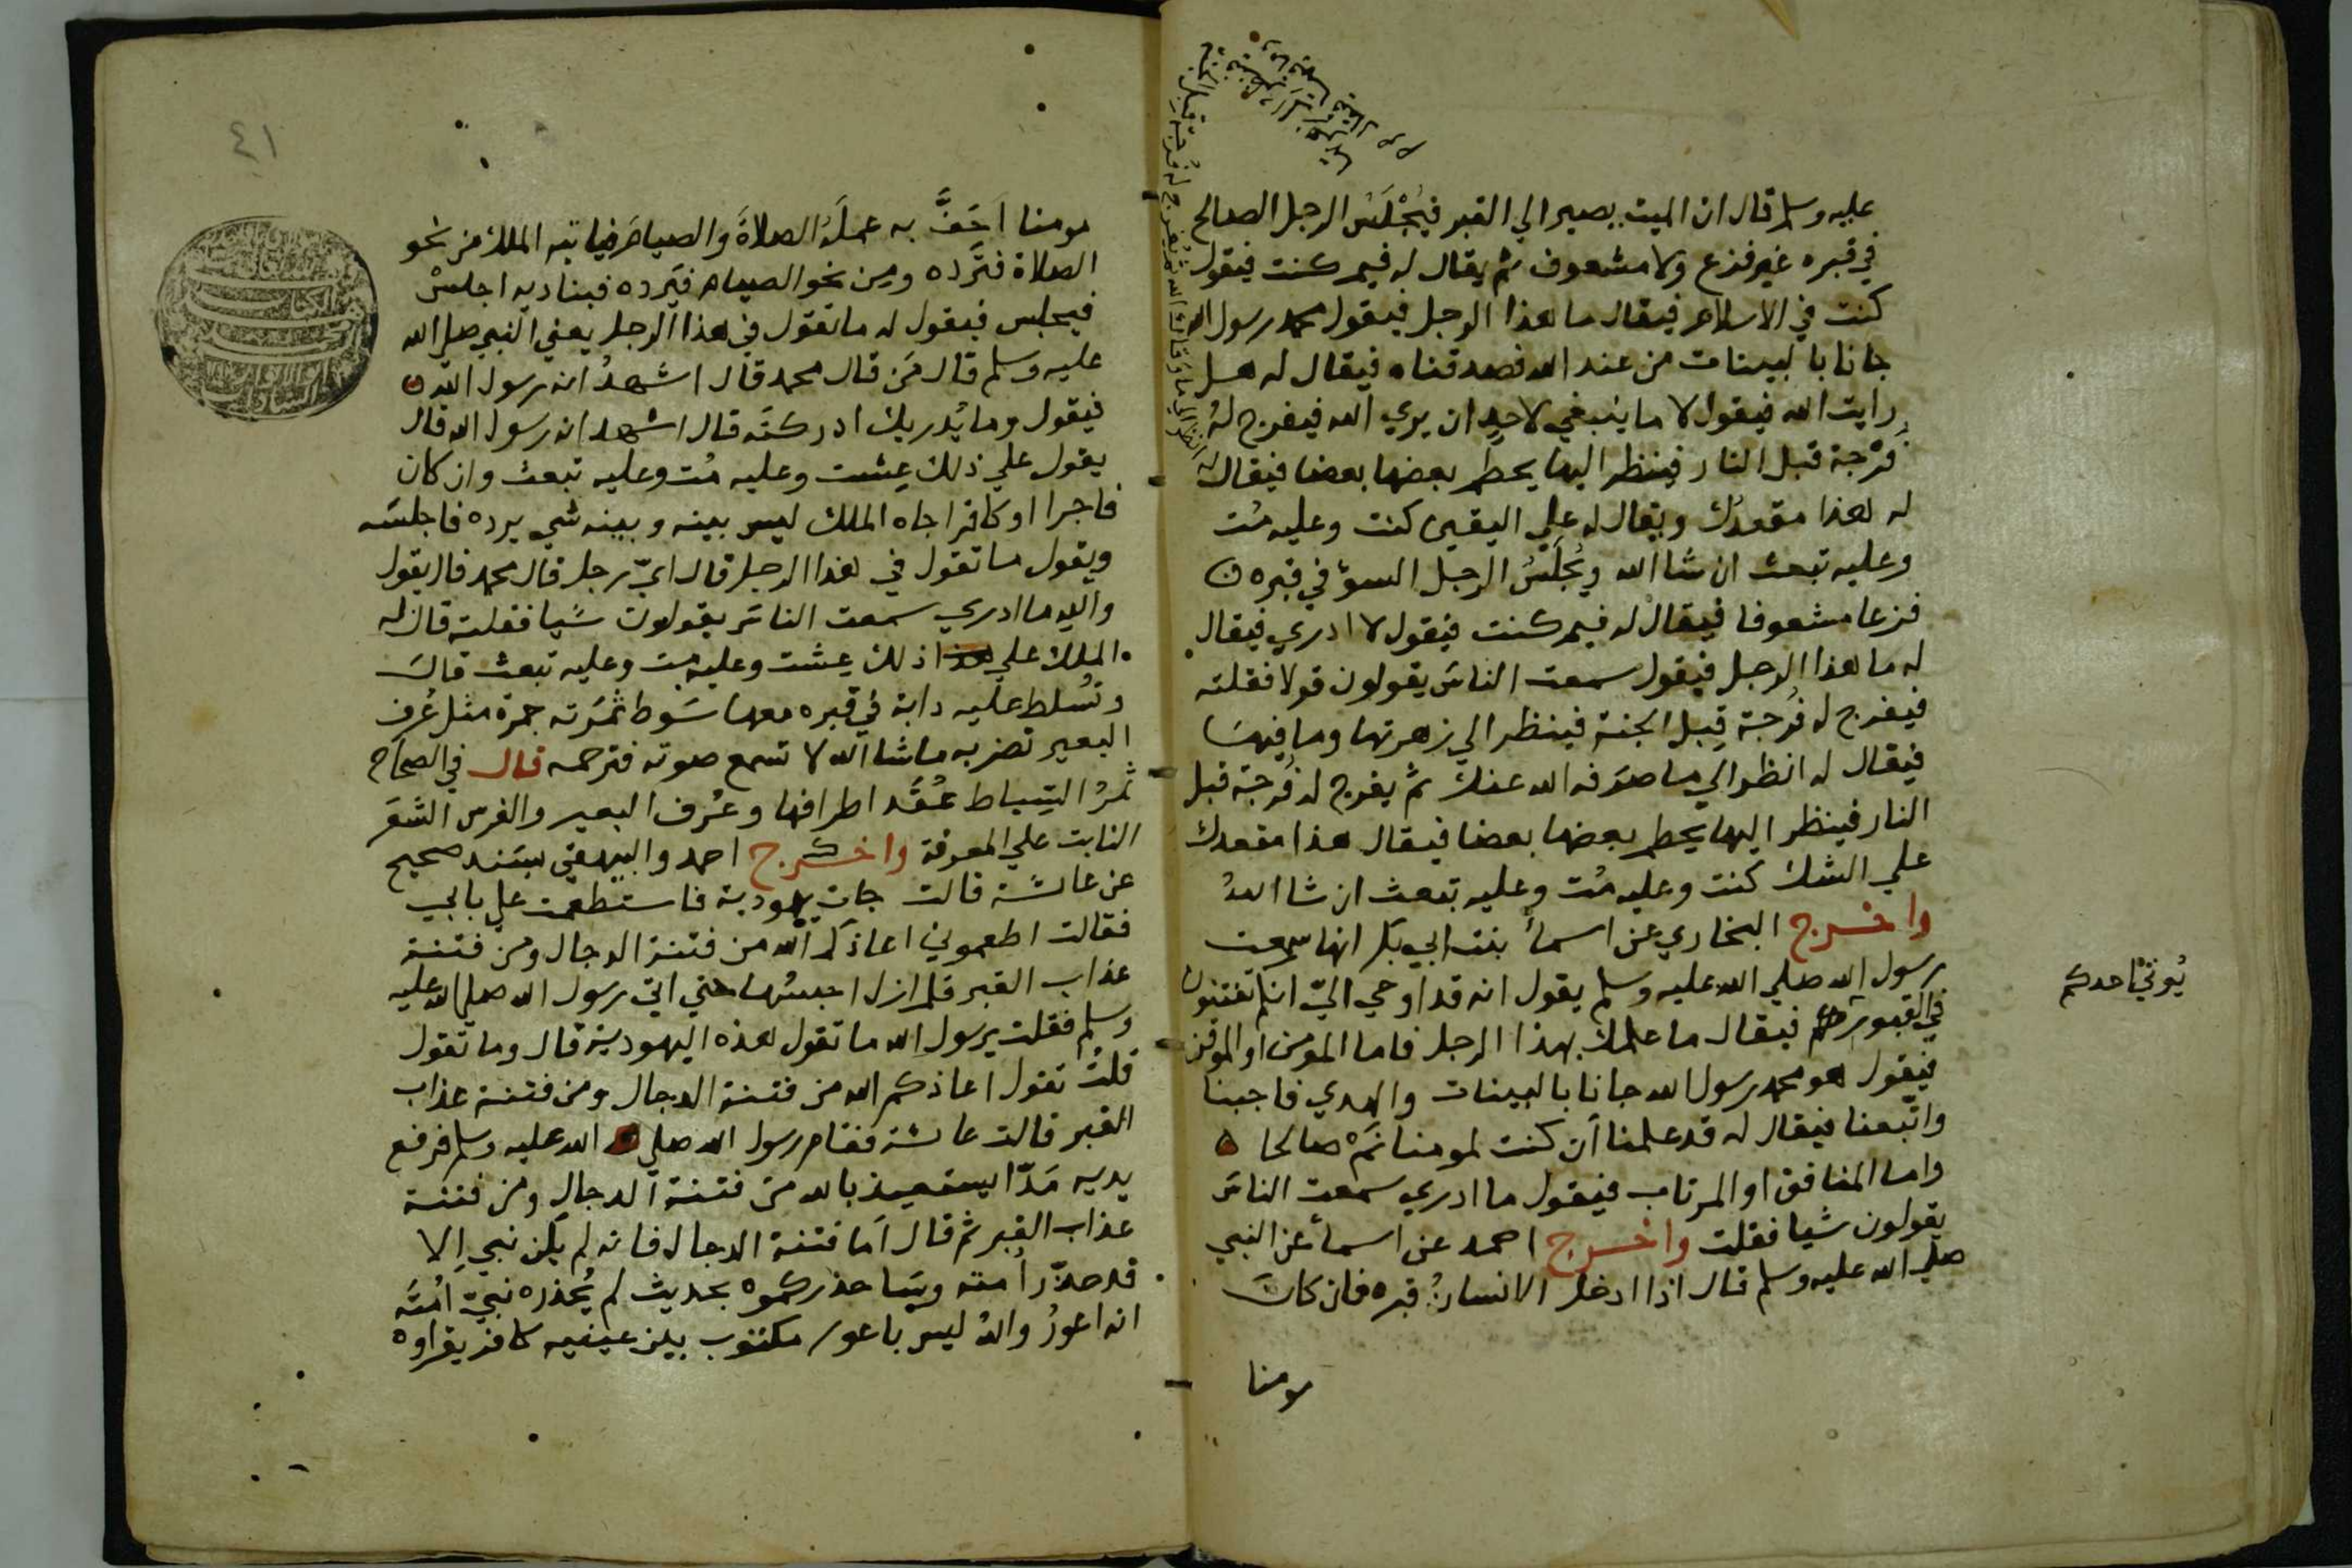 عليه وسلم قال ان الميت يصير الي القبر فيُجْلَسُ الرجل الصالح
في قبره غير فزع ولا مشعوف ثم يقال له فيم كنت فيقول
كنت في الاسلام فيقال ما هذا الرجل فيقول محمد رسول الله
جانا بالبينات من عند الله فصدقناه فيقال له هل
رايت الله فيقول لا ما ينبغي لاحد ان يري الله فيفرج له
فُرْجة قبل النار فينظر اليها يحطم بعضها بعضا فيقال له
انظر الي ما وقاك الله ثم يفرج له فرجة قبل الجنة
له هذا مقعدك ويقال له علي اليقين كنت وعليه مُت
وعليه تبعث ان شا الله ويُجلَسُ الرجل السوء في قبره
فزعا مشعوفا فيقال له فيم كنت فيقول لا ادري فيقال
له ما هذا الرجل فيقول سمعت الناس يقولون قولا فقلته
فيفرج له فُرجة قِبل الجنة فينظر الي زهرتها وما فيها
فيقال له انظر الي ما صرفه الله عنك ثم يفرج له فُرجة قبل
النار فينظر اليها يحطم بعضها بعضا فيقال هذا مقعدك
علي الشك كنت وعليه مُت وعليه تبعث ان شا اللهُ
واخرج البخاري عن اسمأ بنت ابي بكر انها سمعت
رسول الله صلي الله عليه وسلم يقول انه قد اوحي اليّ انكم تفتنون
في القبور فيقال ما علمك بهذا الرجل فاما المومن او الموقن
يُوتيٰ احدكم
فيقول هو محمد رسول الله جانا بالبينات والهدي فاجبنا
واتّبعنا فيقال له قد علمنا اَن كنت لمومنا نَمْ صالحا
واما المنافق او المرتاب فيقول ما ادري سمعت الناس
يقولون شيا فقلت واخرج احمد عن اسمأ عن النبي
صلي الله عليه وسلم قال اذا ادخل الانسانُ قبره فان كان
مومنا
٤١
مومنا اَحَفَّ به عملَهُ الصلاةَ والصيامَ فياتيه الملك من نحو
الصلاة فترده ومن نحو الصيام فيَرده فيناديه اجلسْ
فيجلس فيقول له ما تقول في هذا الرجل يعني النبي صلي الله
عليه وسلم قال مَن قال محمد قال اشهدُ انه رسول الله
فيقول وما يُدريك ادركتَه قال اشهد انه رسول الله قال
يقول علي ذلك عِشت وعليه مُت وعليه تبعث وان كان
فاجرا او كافرا جاه الملك ليس بينه وبينه شي يرده فاجلسَه
ويقول ما تقول في هذا الرجل قال ايّ رجل قال محمد قال يقول
والله ما ادري سمعت الناس يقولون شيا فقلته قال له
الملك علي ذلك عِشت وعليه مت وعليه تبعث قال
وتُسلط عليه دابة في قبره معها سَوط ثمَرَته جمرة مثل عُرف
البعير تضربه ما شا الله لا تسمع صوته فترحمه قال في الصحاح
ثمرُ السِّياط عُقَد اطرافها وعُرف البعير والفرس الشعَر
النابت علي المعرفة واخرج احمد والبيهقي بسَند صحيح
عن عائشة قالت جات يهودية فاستطعمت علي بابي
فقالت اطعموني اعاذكم الله من فتنة الدجال ومن فتنة
عذاب القبر فلم ازل احبسُها حتي اتي رسول الله صلي الله عليه
وسلم فقلت يرسول الله ما تقول هذه اليهودية قال وما تقول
قلتُ تقول اعاذكم الله من فتنة الدجال ومن فتنة عذاب
القبر قالت عائشة فقام رسول الله صلي الله عليه وسلم فرفع
يديه مَدّا يستعيذ بالله من فتنة الدجال ومن فتنة
عذاب القبر ثم قال اَما فتنة الدجال فانه لم يكن نبي اِلا
قد حذّر اُمته وسَاحذركموه بحديث لم يُحذره نبيّ اُمتَه
انه اعورُ واللهُ ليس باعور مكتوب بين عينيه كافر يقراوه